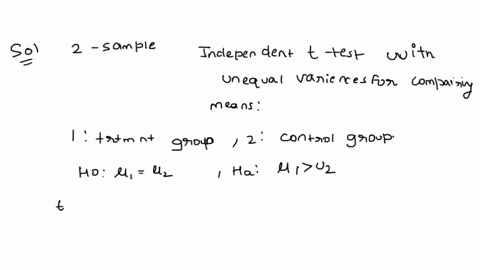 Sol 2 - sample Independent t-test with
unequal variences for compairing
means:
1: trtmnt group , 2: control group.
H0: μ1 = μ2 , Ha: μ1 > μ2
t